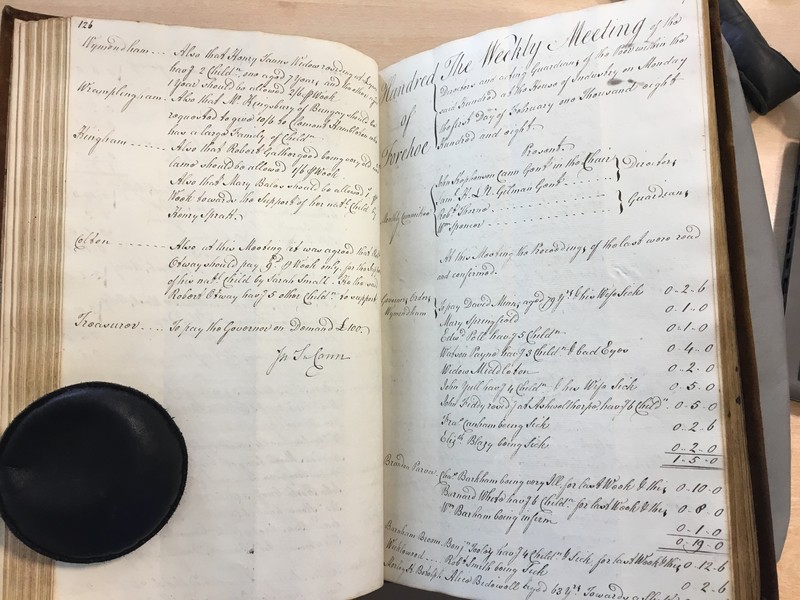 126
Wymondham .... Also that Honry Tanns Widow residg at Lynn
havg 2 Childn one aged 7 Years and the other
1 Year should be allowed 2/6 ⅌ Week
Wramplingham .. Also that Mr Kingsbury of Bungay should be
requested to give 10/6 to Clement
has a large Family of Childn
Hingham ..... Also that Robert Gathergood being very old and
lame should be allowed 1/6 ⅌ Week
Also that Mary Bales should be allowed
Week towards the Support of her natl Child by
Henry Spratt.
Colton ...... Also at this Meeting it was agreed that Robt
Otway should pay ⅌ Week only, for the Support
of his natl Child by Sarah Small. He the said
Robert Otway havg 5 other Childn to support
Treasurer .... To pay the Governor on Demand £100.
Jn S. Cann
Hundred
of
Forehoe
The Weekly Meeting of the
Directors and acting Guardians of the Poor within the
said Hundred at the House of Industry on Monday
the first Day of February one Thousand eight
Hundred and eight.
Present
Weekly Committee
John Stephenson Cann Gent. in the Chair
Saml H. L. N. Gilman Gent. ......
Directors
Robt Thorne .......
Wm Spencer .......
Guardians
At this Meeting the Proceedings of the last were read
and confirmed.
Governors Orders
Wymondham
To pay David Mann aged 79 Yrs & his Wife Sick 0-2-6
Mary Springfield 0-1-0
Edwd Poll havg 5 Childn 0-1-0
Watson Payne havg 3 Childn & bad Eyes 0-4-0
Widow Middleton 0-2-0
John Yull havg 4 Childn & his Wife Sick 0-5-0
John Fiddy residg at Ashwellthorpe havg 6 Childn 0-5-0
Fras Canham being Sick 0-2-6
Elizth Blazy being Sick 0-2-0
1-5-0
Brandon Parva Chas Barkham being very Ill for last Week & this 0-10-0
Barnard White havg 6 Childn for last Week & this 0-8-0
Wm Barham being infirm 0-1-0
0-19-0
Barnham Broom Benjn Tooley havg 4 Childn & Sick for last Week & this 0-12-6
Wicklewood .... Robt Smith being Sick 0-2-6
Morley St Botolph Alice Bidewell aged 63 Yrs Towards a